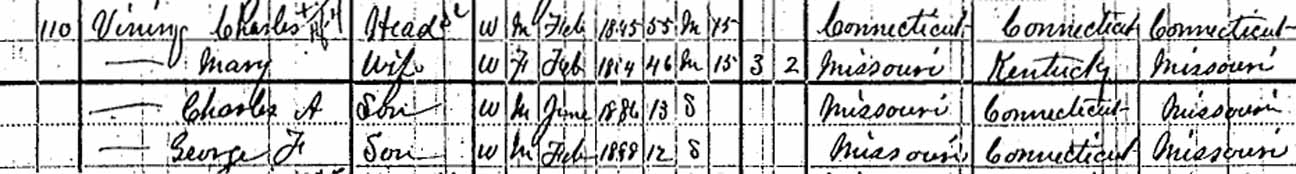 110 Vining Charles H Head W M Feb 1845 55 M 15 Connecticut Connecticut Connecticut
— Mary Wife W F Feb 1854 46 M 15 3 2 Missouri Kentucky Missouri
— Charles A Son W M June 1886 13 S Missouri Connecticut Missouri
— George F Son W M Feb 1888 12 S Missouri Connecticut Missouri